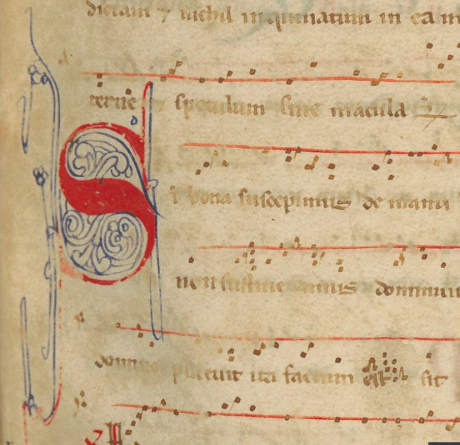 dictam ⁊ nichil inquinatum in ea in
terne & speculum sine macula
S
i bona suscepimus de manu
non sustineamus dominum
domino placuit ita factum est sit